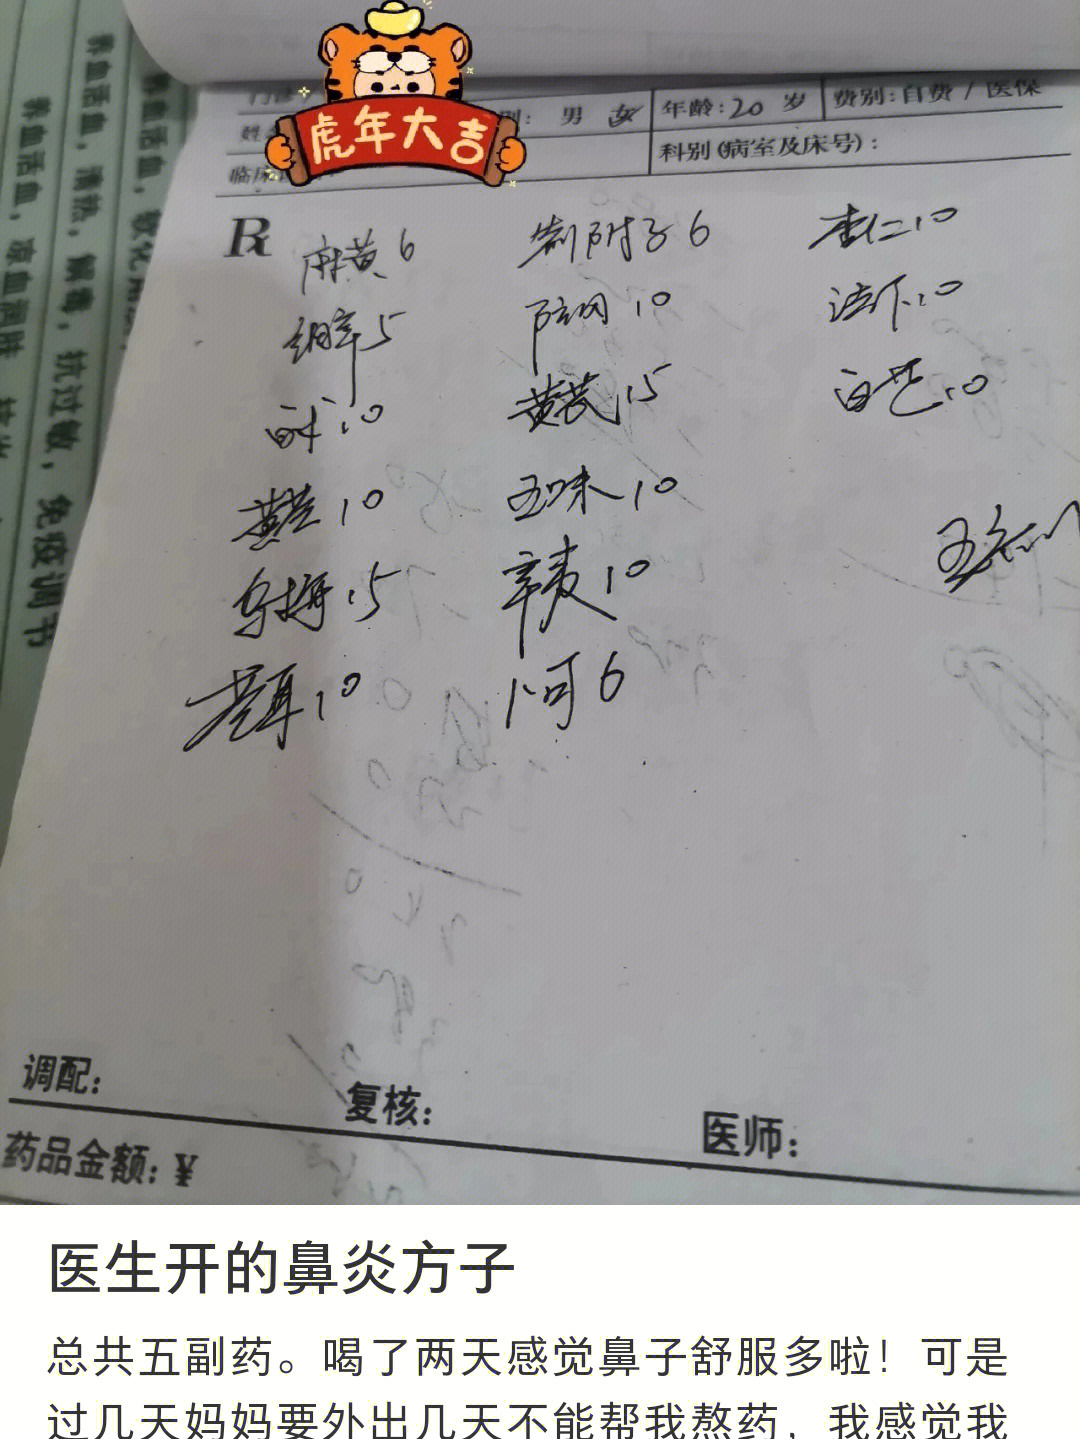 虎年大吉
男 女 年龄:20 岁 费别:自费 / 医保
姓
临床
科别(病室及床号):
R
麻黄 6 制附子 6 杏仁 10
细辛 5 防风 10 法下 10
白术 10 黄芪 15 白芷 10
黄芩 10 五味 10
乌梅 15 辛夷 10
苍耳 10 诃 6
调配: 复核: 医师:
药品金额:¥
养血活血，清热，解毒，抗过敏，免疫调节
养血活血，凉血润肤
医生开的鼻炎方子
总共五副药。喝了两天感觉鼻子舒服多啦！可是
过几天妈妈要外出几天不能帮我熬药，我感觉我